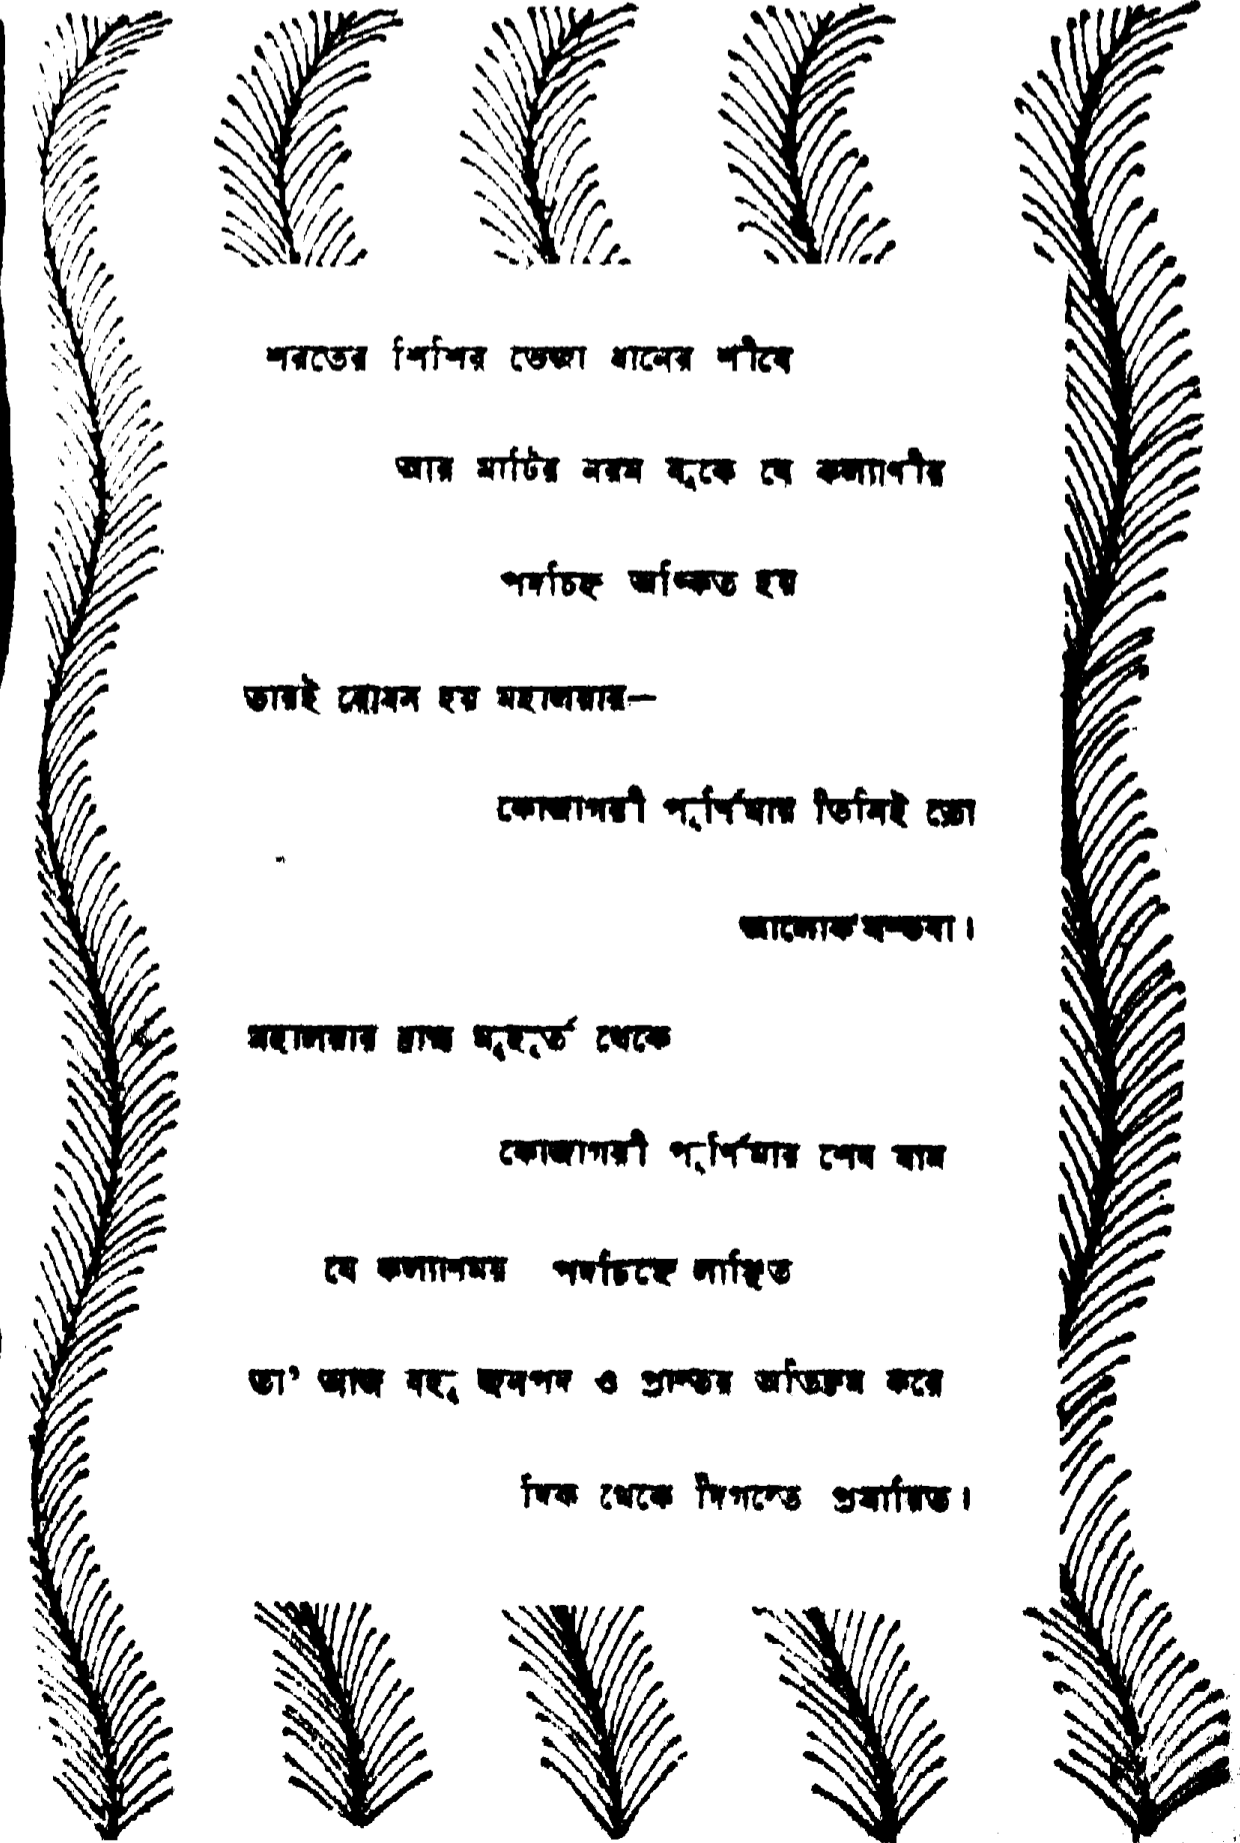 শরতের শিশির ভেজা ধানের শীষে
আর মাটির নরম বুকে যে কল্যাণীর
পদচিহ্ন অঙ্কিত হয়
তারই বোধন হয় মহালয়ায়—
কোজাগরী পূর্ণিমায় তিনিই তো
মহালয়ার ব্রাহ্ম মুহূর্ত থেকে
কোজাগরী পূর্ণিমার শেষ যাম
যে কল্যাণময় পদচিহ্নে লাঞ্ছিত
তা’ আজ বহু জনপদ ও প্রান্তর অতিক্রম করে
দিক থেকে দিগন্তে প্রসারিত।